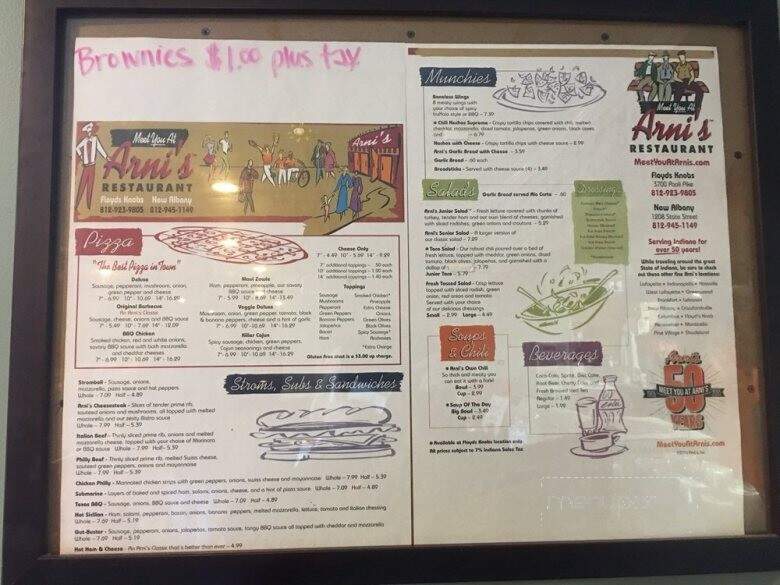 Brownies $1.00 plus tax
Meet You At
Arni's
RESTAURANT
Floyds Knobs New Albany
812-923-9805 812-945-1149
Arni's
Pizza
"The Best Pizza in Town"
Deluxe
Sausage, pepperoni, mushroom, onion,
green pepper and cheese
7" - 6.99 10" - 10.69 14" - 16.29
Original Barbecue
An Arni's Classic
Sausage, cheese, onions and BBQ sauce
BBQ Chicken
Smoked chicken, red and white onions,
savory BBQ sauce with both mozzarella
and cheddar cheeses
7" - 6.99 10" - 10.69 14" - 16.29
Maui Zowie
Ham, pepperoni, pineapple, our savory
BBQ sauce and cheese
Veggie Deluxe
Mushroom, onion, green pepper, tomato, black
& banana peppers, cheese and a hint of garlic
7" - 6.99 10" - 10.69 14" - 16.29
Killer Cajun
Spicy sausage, chicken, green peppers,
Cajun seasonings and cheese
7" - 6.99 10" - 10.69 14" - 16.29
Cheese Only
7" - 4.49 10" - 5.69 14" - 9.29
7" additional toppings - .50 each
10" additional toppings - 1.00 each
14" additional toppings - 1.40 each
Toppings
Sausage Smoked Chicken*
Mushrooms Pineapple
Pepperoni Extra Cheese
Green Peppers Onions
Banana Peppers Green Olives
Jalapeños Black Olives
Bacon Spicy Sausage*
Ham Anchovies
*Extra Charge
Gluten free crust is a $3.00 up charge.
Stroms, Subs & Sandwiches
Stromboli - Sausage, onions,
mozzarella, pizza sauce and hot peppers
Whole - 7.09 Half - 4.89
Arni's Cheesesteak - Slices of tender prime rib,
sautéed onions and mushrooms, all topped with melted
mozzarella and our zesty Bistro sauce
Whole - 7.99 Half - 5.39
Italian Beef - Thinly sliced prime rib, onions and melted
mozzarella cheese, topped with your choice of Marinara
or BBQ sauce Whole - 7.99 Half - 5.39
Philly Beef - Thinly sliced prime rib, melted Swiss cheese,
sautéed green peppers, onions and mayonnaise
Whole - 7.99 Half - 5.39
Chicken Philly - Marinated chicken strips with green peppers, onions, swiss cheese and mayonnaise Whole - 7.99 Half - 5.39
Submarine - Layers of baked and spiced ham, salami, onions, cheese, and a hint of pizza sauce Whole - 7.09 Half - 4.89
Texas BBQ - Sausage, onions, BBQ sauce and cheese Whole - 7.09 Half - 4.89
Hot Sicilian - Ham, salami, pepperoni, bacon, onions, banana peppers, melted mozzarella, lettuce, tomato and Italian dressing
Whole - 7.69 Half - 5.19
Gut-Buster - Sausage, pepperoni, onions, jalapeños, tomato sauce, tangy BBQ sauce all topped with cheddar and mozzarella
Whole - 7.69 Half - 5.19
Hot Ham & Cheese - An Arni's Classic that's better than ever - 4.99
Munchies
Boneless Wings
8 meaty wings with
your choice of spicy
buffalo style or BBQ - 7.39
Chili Nachos Supreme - Crispy tortilla chips covered with chili, melted
cheddar, mozzarella, diced tomato, jalapenos, green onions, black olives
Nachos with Cheese - Crispy tortilla chips with cheese sauce - 2.99
Arni's Garlic Bread with Cheese - 3.59
Garlic Bread - .60 each
Breadsticks - Served with cheese sauce (4) - 3.49
Salads
Garlic Bread served Ala Carte - .60
Arni's Junior Salad™ - Fresh lettuce covered with chunks of
turkey, tender ham and our own blend of cheeses; garnished
with sliced radishes, green onions and croutons - 5.29
Arni's Senior Salad - A larger version of
our classic salad - 7.29
Taco Salad - Our natural chili poured over a bed of
fresh lettuce, topped with cheddar, green onions, diced
tomato, black olives, jalapenos, and garnished with a
dollop of
Junior Taco - 5.79
Fresh Tossed Salad - Crisp lettuce
topped with sliced radish, green
onion, red onion and tomato
Served with your choice
of our delicious dressings
Small - 2.99 Large - 4.49
Dressings
Soups
& Chili
Arni's Own Chili
So thick and meaty you
can eat it with a fork!
Bowl - 3.99
Cup - 2.99
Soup Of The Day
Big Bowl - 3.49
Cup - 2.49
Beverages
Coca-Cola, Sprite, Diet Coke,
Root Beer, Cherry Coke and
Fresh Brewed Iced Tea
Regular - 1.49
Large - 1.99
Available at Floyds Knobs location only
All prices subject to 7% Indiana Sales Tax
Meet You At
Arni's
RESTAURANT
MeetYouAtArnis.com
Floyds Knobs
3700 Paoli Pike
812-923-9805
New Albany
1208 State Street
812-945-1149
Serving Indiana for
over 50 years!
While traveling around the great
State of Indiana, be sure to check
out these other fine Arni's locations:
Lafayette • Indianapolis • Noresville
West Lafayette • Greenwood
Frankfort • Lebanon
New Albany • Crawfordsville
Columbus • Floyd's Knob
Rensselaer • Monticello
Pine Village • Brookston
Arni's
50
MEET YOU AT ARNI'S
YEARS
MeetYouAtArnis.com